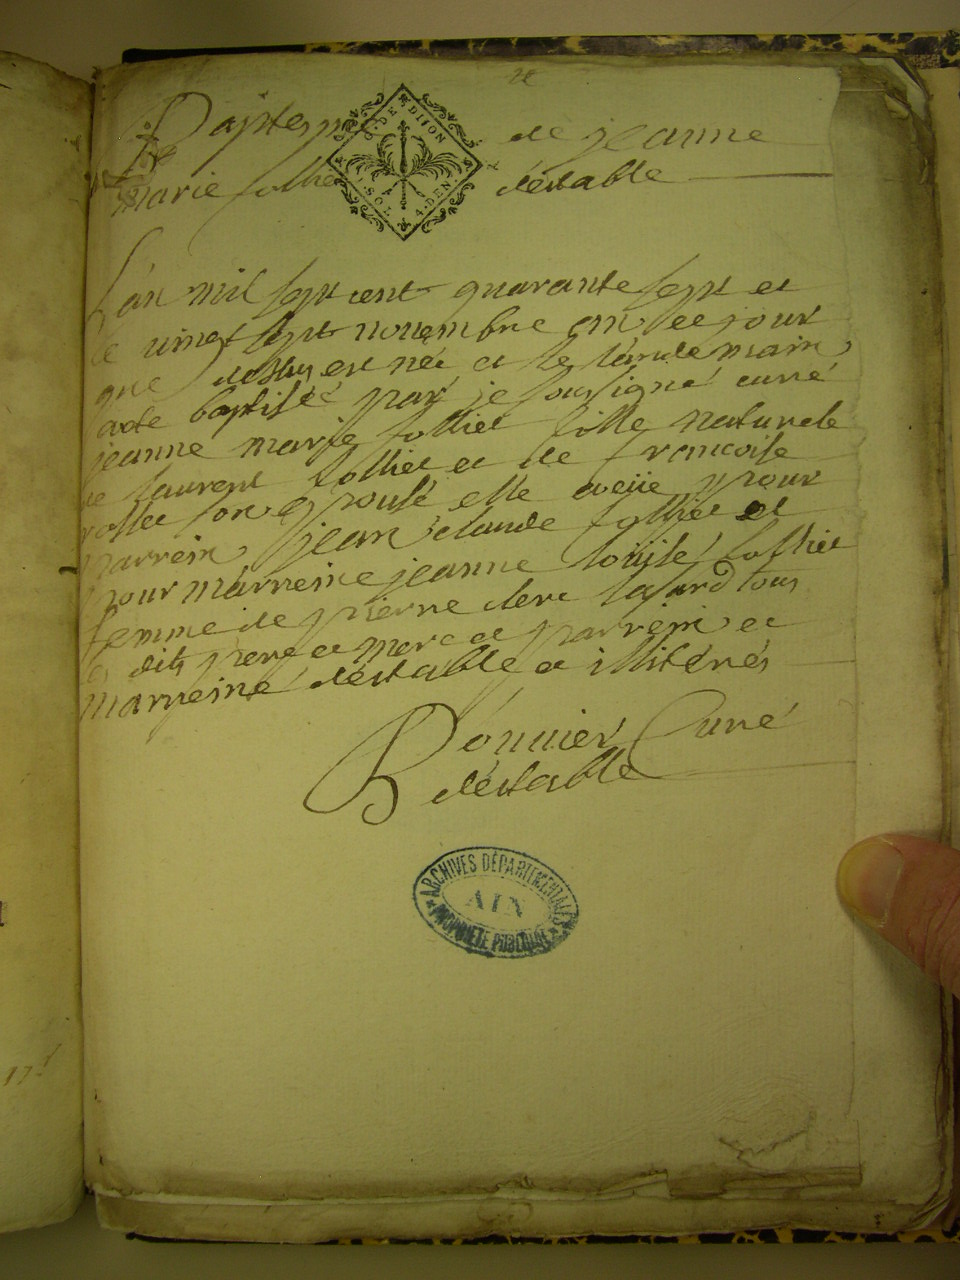 Baptesme de jeanne
marie follie déstable
G. DE DIJON
SOL 4. DEN.
L'an mil sept cent quarante sept et
le vingt sept novembre am ce jour
que dessus est née et le lande main
a été baptisée par je sousigné curé
jeanne marie folliet fille naturele
de laurent folliet et de francoise
rollet son épouse elle a veüe pour
parrein jean claude folliet et
pour marreine jeanne louise folliet
femme de pierre clerc tous
les dits pere et mere et parrein et
marreine déstable et illiterés
Bonnier Curé
déstable
ARCHIVES DÉPARTEMENTALES
AIN
PROPRIÉTÉ PUBLIQUE